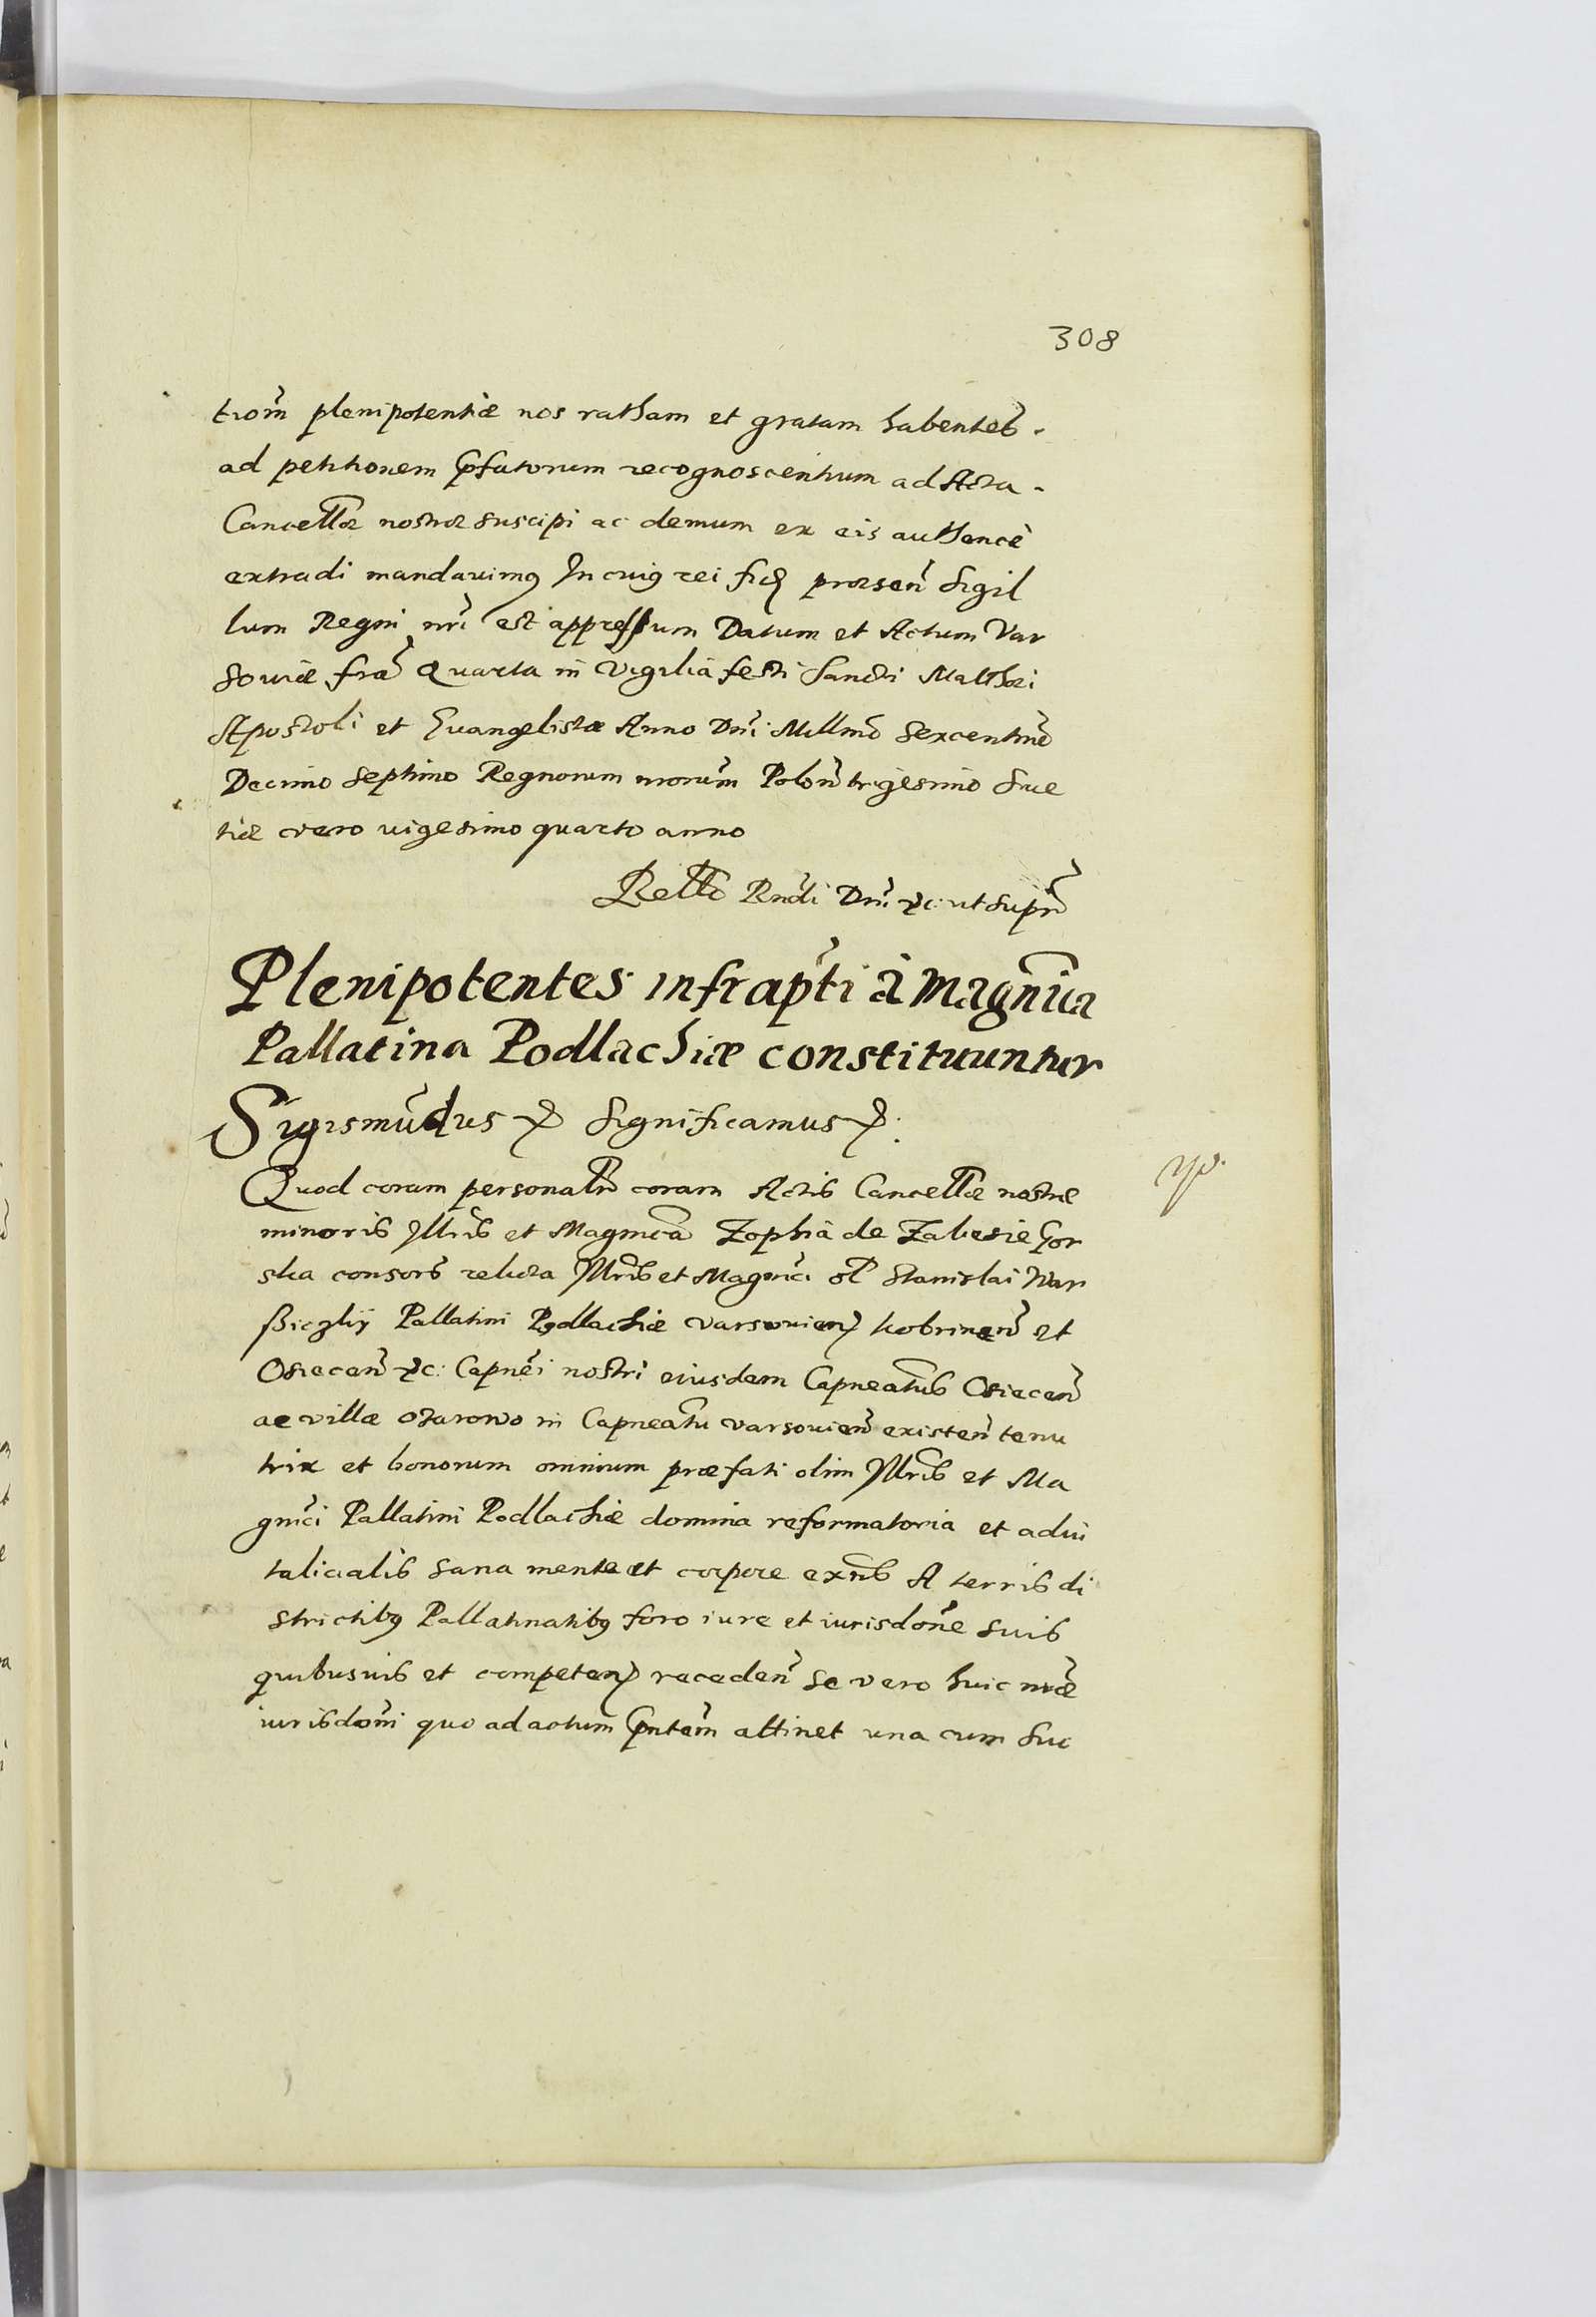 308
tiom̃ plenipotentiæ nos ratham et gratam habentes.
ad petitionem Pp̃fatorum recognoscentium ad Acta.
Cancellæ nostræ suscipi ac demum ex eis authencè
extradi mandavimus In cuius rei fid præseñ Sigil
lum Regni nri est appressum Datum et Actum Var
soviæ fræ Quarta in Vigilia festi Sancti Matthæi
Apostoli et Evangelistæ Anno Dñi Millmo Sexcentmo
Decimo Septimo Regnorum nrorum Poloñ trigesimo Sue
tiæ vero vigesimo quarto anno
Rellõ Rndi Dñi &c: ut supra
Plenipotentes infrapti à Magnica
Pallatina Podlachiæ constituuntur
Sigismũdus &c Significamus &c:
Quod coram personalr coram Actis Cancellæ nostræ
minoris Illris et Magnica Zophia de Zalesie Gor
ska consors relicta Illris et Magnici ol Stanislai War
ßiczky Pallatini Podlachiæ Varsovien kobrineñ et
Osieceñ &c: Capnei nostri eiusdem Capneatus Osieceñ
ac villæ Ozarowo in Capneatu varsovieñ existeñ tenu
trix et bonorum omnium præfati olim Illris et Ma
gnici Pallatini Podlachiæ domina reformatoria et advi
talicialis sana mente et corpore exñs A terris di
strictibus Pallatinatibus foro iure et iurisdone suis
quibusvis et competen recedeñ se vero huic nræ
iurisdoni quo ad actum Pñtem attinet una cum suc